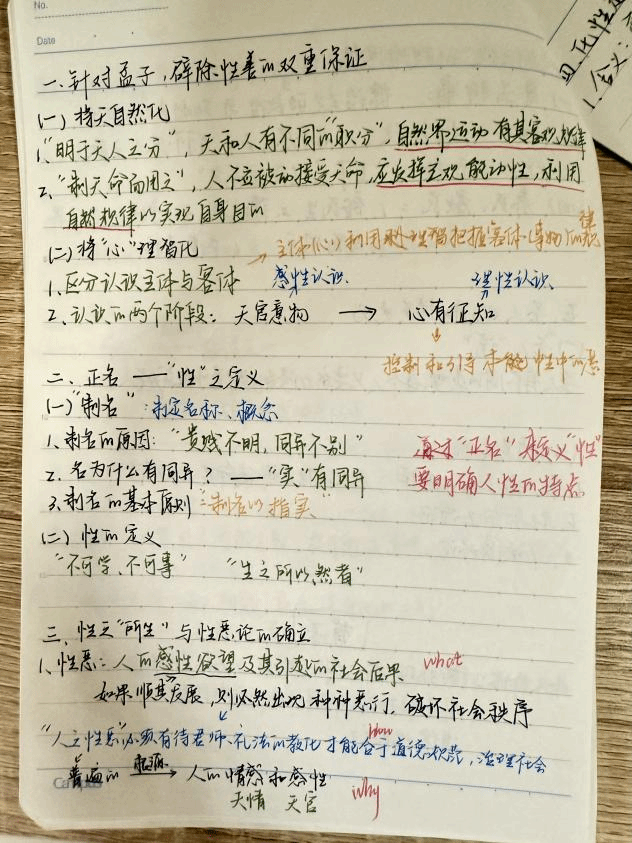 No.
Date
四.化性
1.含义:
一.针对孟子,辟除性善的双重保证
(一)将天自然化
1."明于天人之分",天和人有不同的"职分",自然界运动有其客观规律
2."制天命而用之",人不应被动接受天命,应发挥主观能动性,利用
自然规律以实现自身目的
(二)将"心"理智化
→主体(心)利用理智把握客体(事物)的规律
1.区分认识主体与客体 感性认识. 理性认识.
2.认识的两个阶段: 天官意物 → 心有征知
控制和引导本能/性中的恶
二、正名——"性"之定义
(一)"制名":制定名称、概念
1.制名的原因:"贵贱不明,同异不别" 通过"正名"来定义"性"
2.名为什么有同异?——"实"有同异 要明确人性的特点
3.制名的基本原则:"制名以指实"
(二)性的定义
"不可学、不可事" "生之所以然者"
三、性之"所生"与性恶论的确立
1.性恶:人的感性欲望及其引起的社会后果 what
如果顺其发展,则必然出现种种恶行,破坏社会秩序
how
"人之性恶"必须有待君师、礼法的教化才能合于道德规范,治理社会
普遍的 根源→ 人的情感和感性
天情 天官 why
Campus